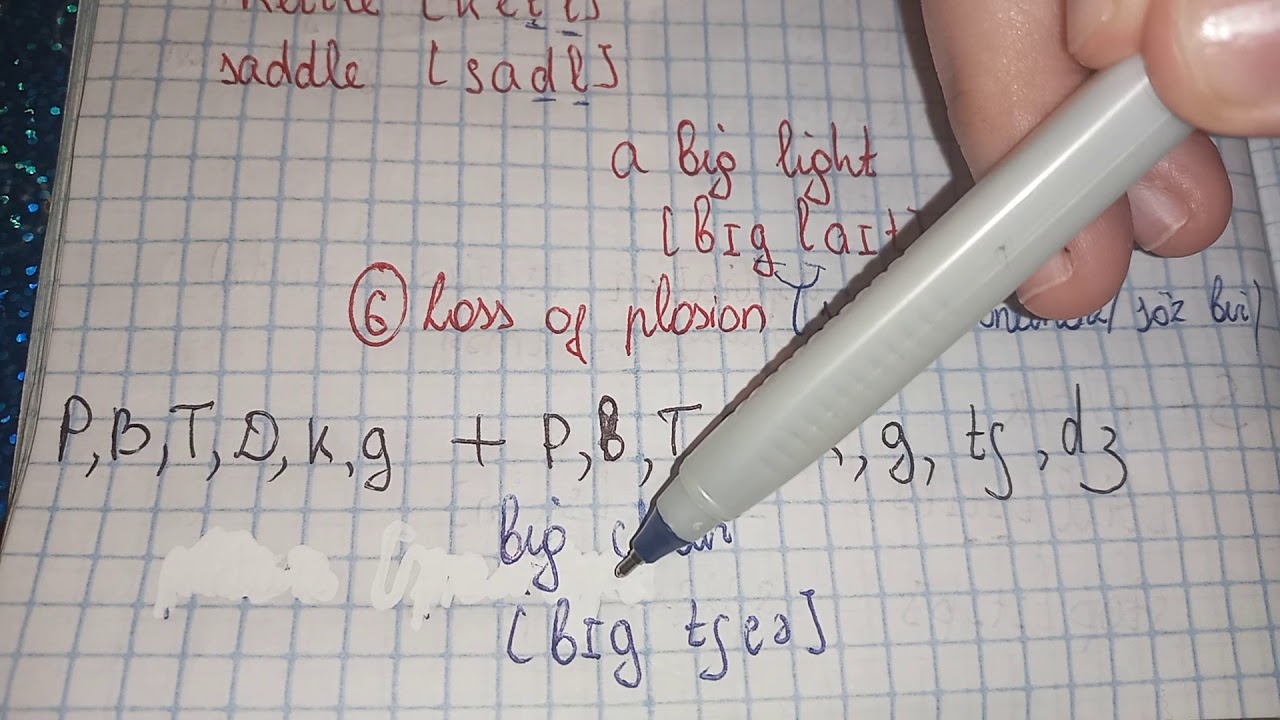 saddle [sadl]
a big light
[bIg laIt]
⑥ Loss of plosion ( söz bir)
P, B, T, D, k, g + P, B, T , g, tʃ, dʒ
big
[bIg tʃeə]